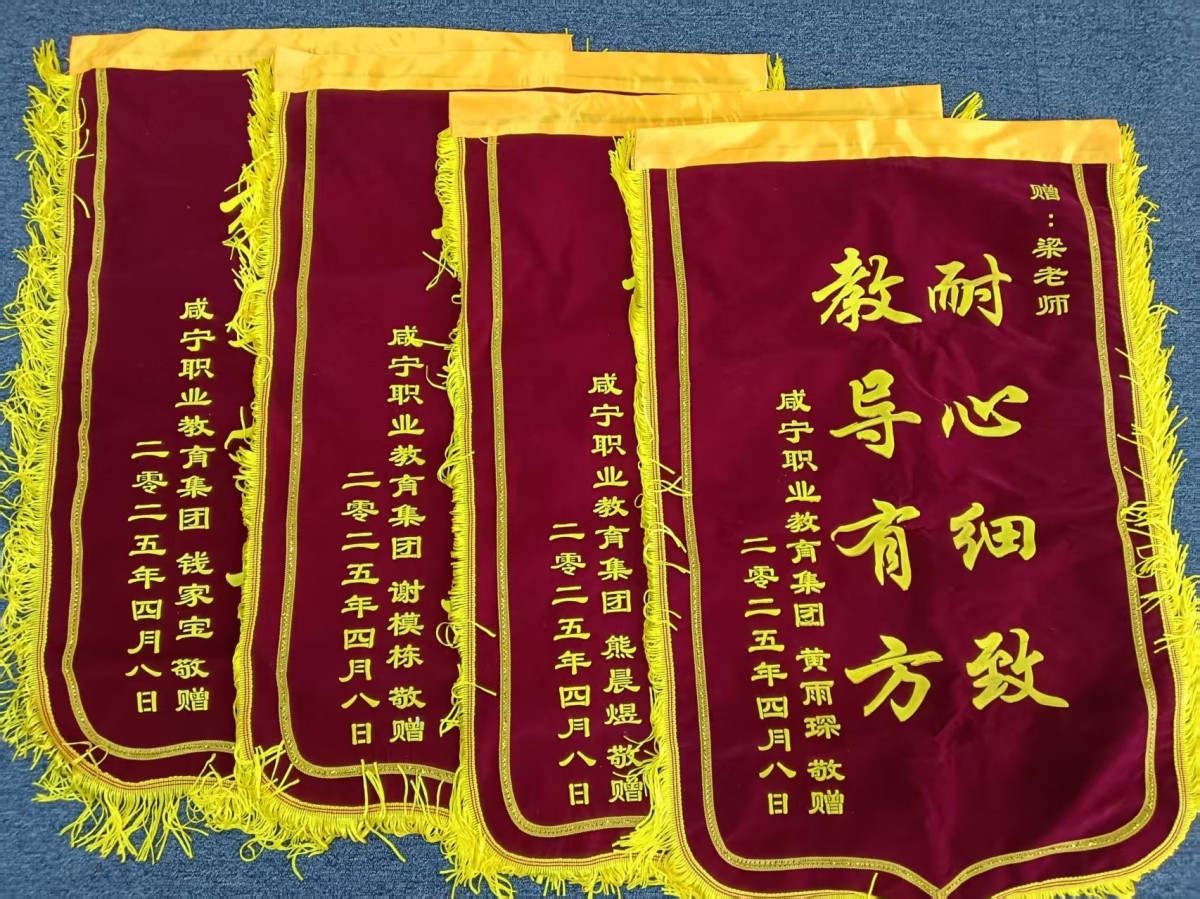 赠：梁老师
耐心细致
教导有方
咸宁职业教育集团 黄雨琛 敬赠
二零二五年四月八日
咸宁职业教育集团 熊晨煜 敬赠
二零二五年四月八日
咸宁职业教育集团 谢模栋 敬赠
二零二五年四月八日
咸宁职业教育集团 钱家宝 敬赠
二零二五年四月八日